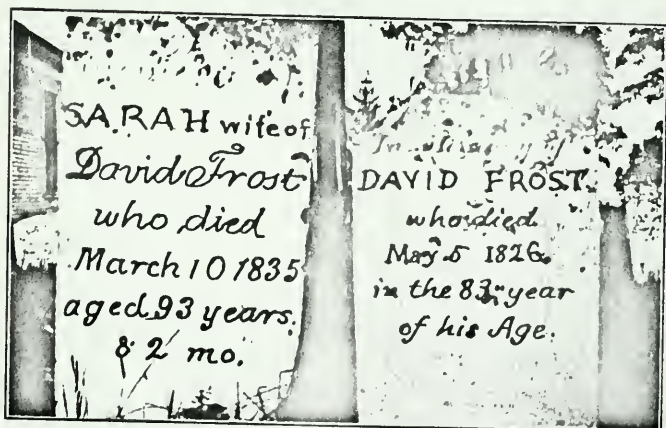 SARAH wife of
David Frost
who died
March 10 1835
aged 93 years.
& 2 mo.
In memory of
DAVID FROST
who died
May 5 1826
in the 83 year
of his Age.